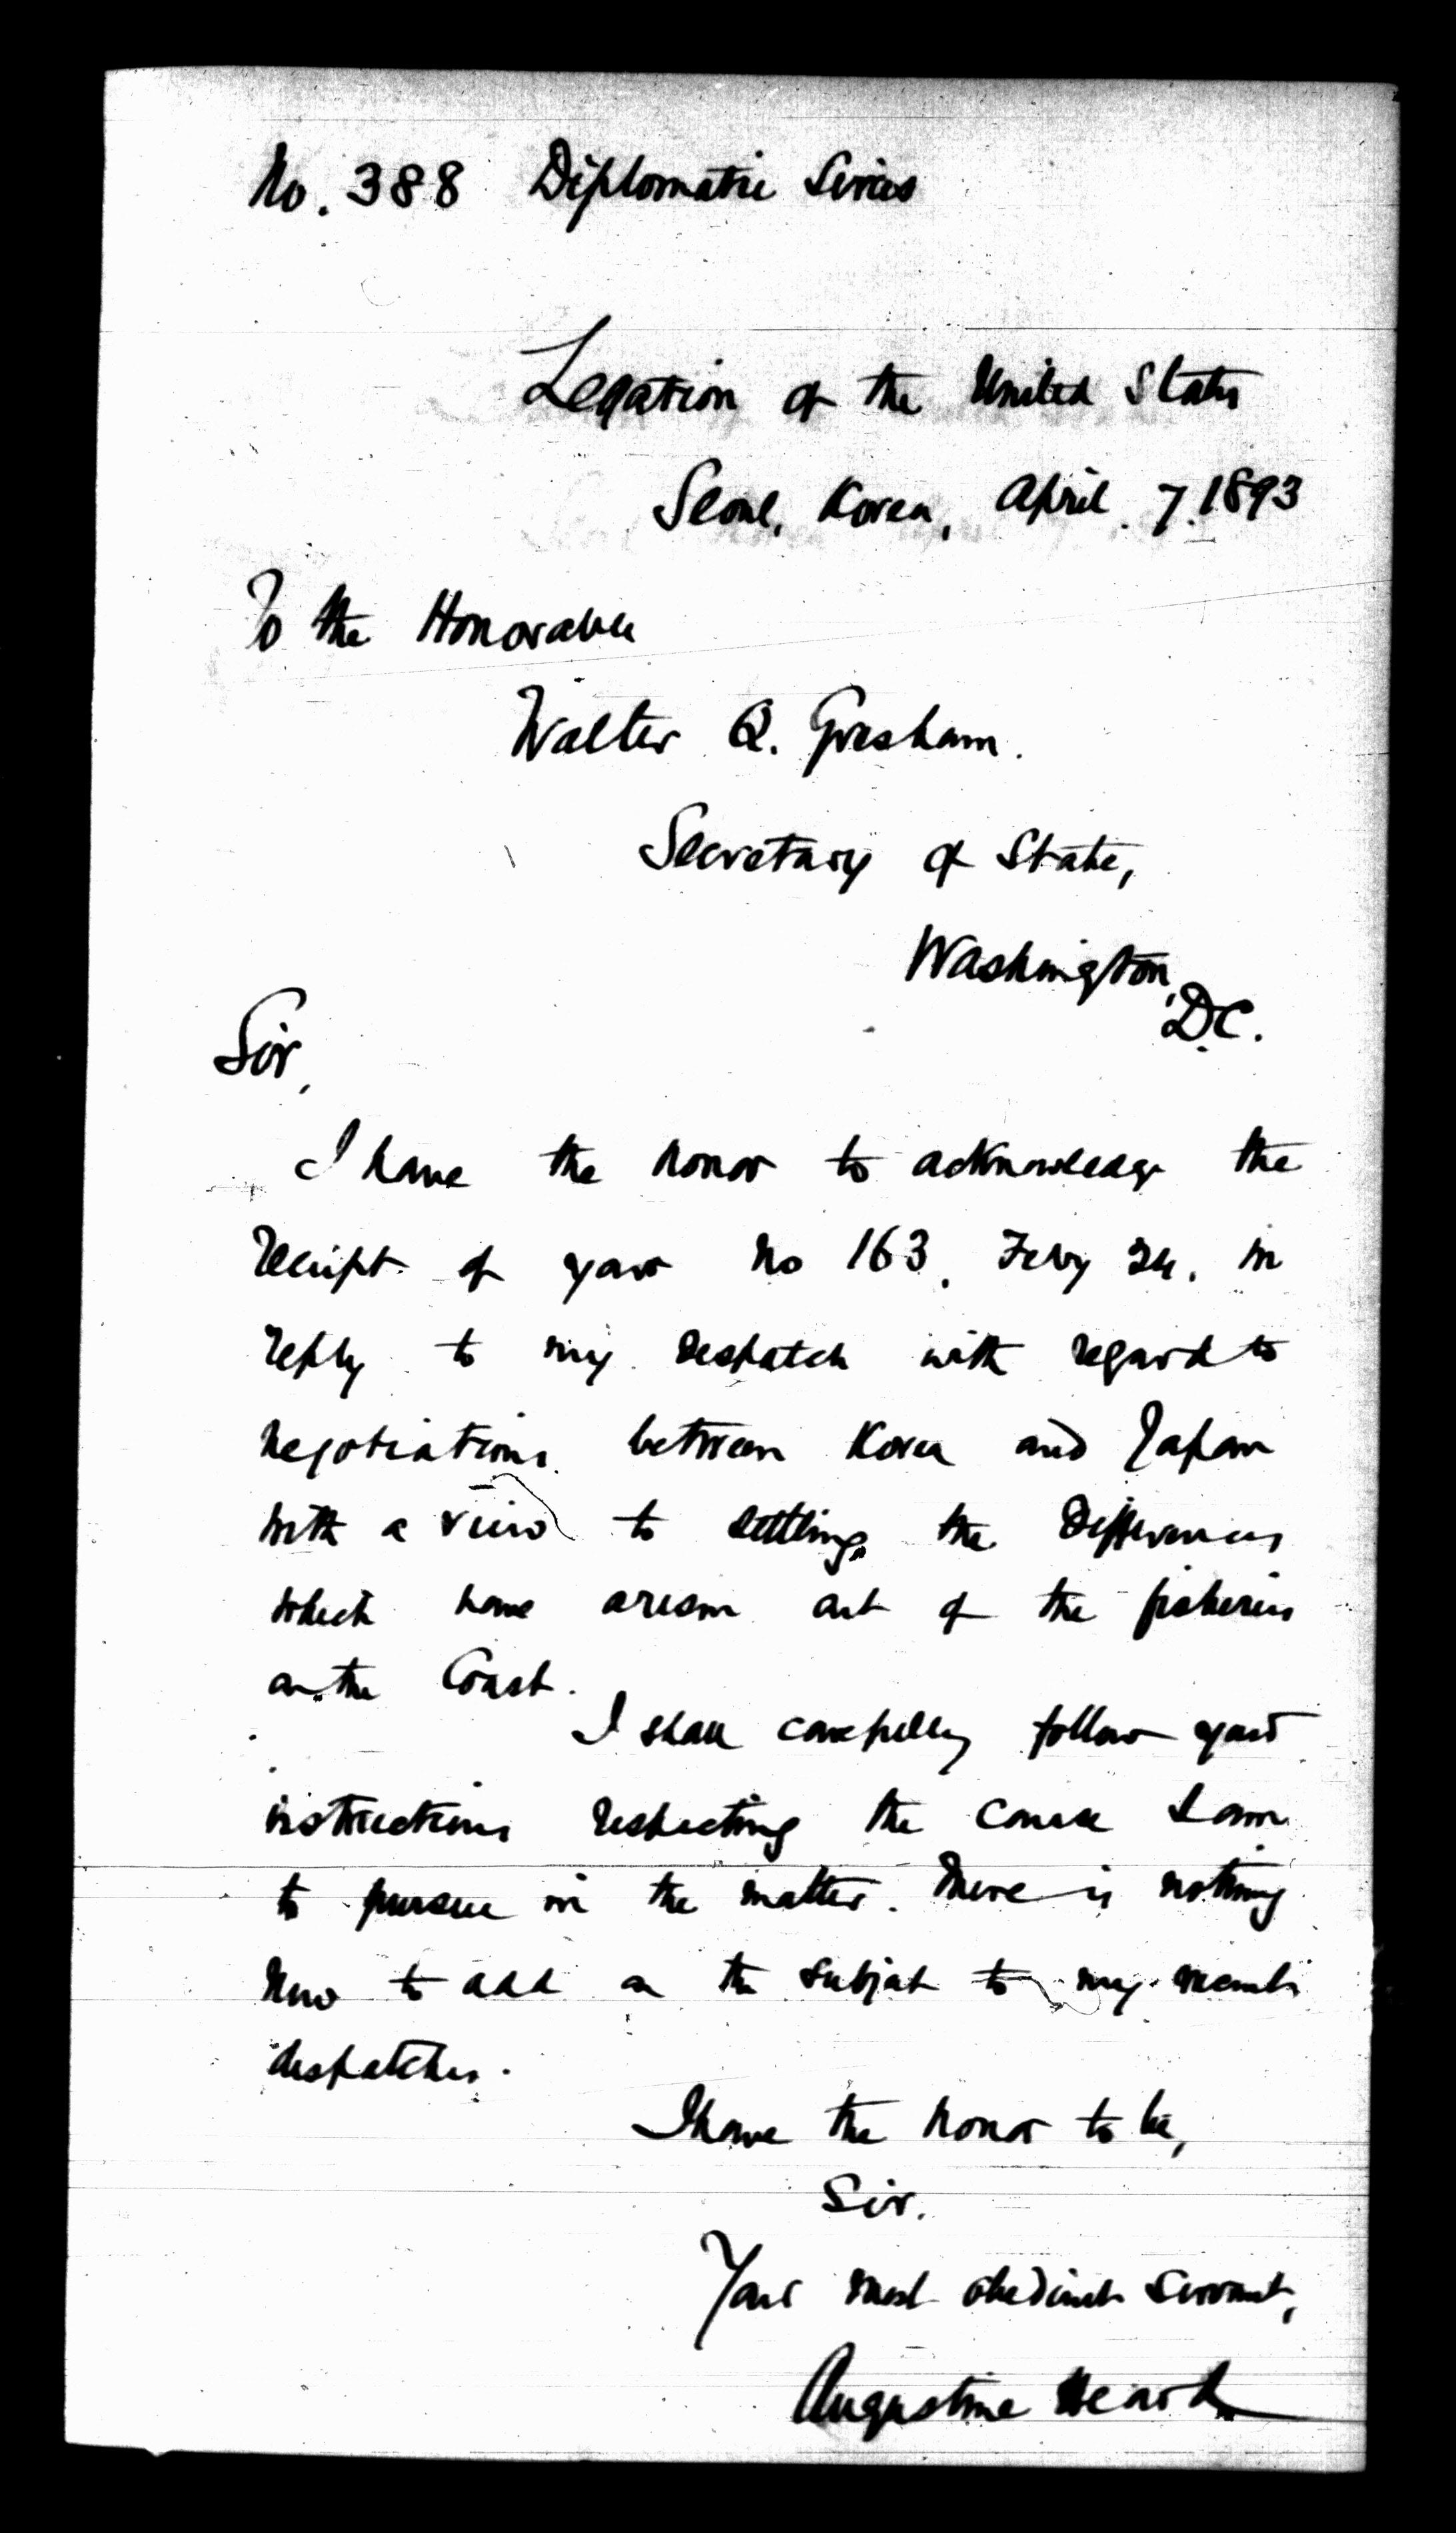 No. 388 Diplomatic Series
Legation of the United States
Seoul, Korea, April 7. 1893
To the Honorable
Walter Q. Gresham.
Secretary of State,
Washington,
D.C.
Sir,
I have the honor to acknowledge the
receipt of your No 163. Feby 24. in
reply to my despatch with regard to
negotiations between Korea and Japan
with a view to settling the differences
which have arisen out of the fisheries
on the Coast.
I shall carefully follow your
instructions respecting the course I am
to pursue in the matter. There is nothing
new to add on the subject to my recent
despatches.
I have the honor to be,
Sir.
Your most obedient servant,
Augustine Heard